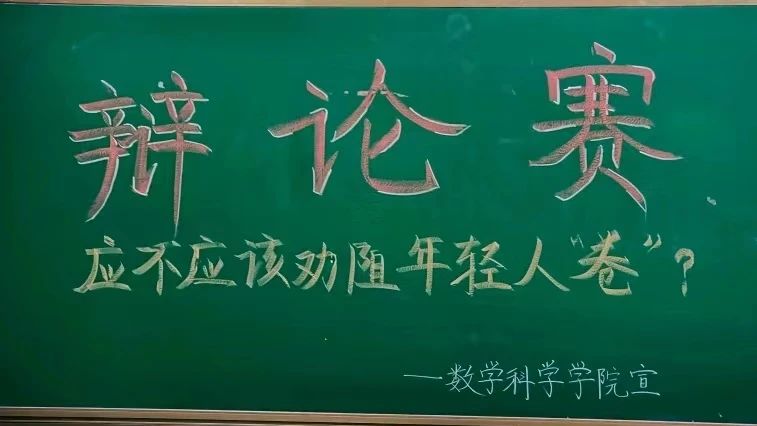 辩论赛
应不应该劝阻年轻人“卷”?
一数学科学学院宣